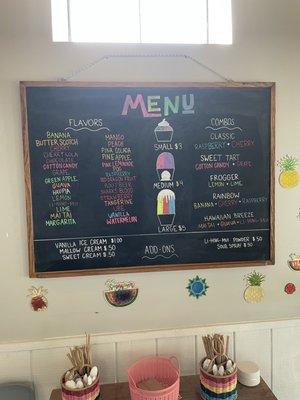 MENU
FLAVORS
BANANA
BUTTER SCOTCH
CHERRY
CHERRY COLA
CHOCOLATE
COTTON CANDY
GRAPE
GREEN APPLE
GUAVA
LEMON
LIME
MAI TAI
MARGARITA
MANGO
PEACH
PIÑA COLADA
PINE APPLE
PINK LEMONADE
POG
RASPBERRY
RED DRAGON FRUIT
ROOT BEER
SHARKS BLOOD
STRAWBERRY
TANGERINE
TIGERS BLOOD
VANILLA
WATERMELON
SMALL $3
MEDIUM $4
LARGE $5
COMBOS
CLASSIC
RASPBERRY · CHERRY
SWEET TART
COTTON CANDY · GRAPE
FROGGER
LEMON · LIME
RAINBOW
BANANA · CHERRY · RASPBERRY
HAWAIIAN BREEZE
MAI TAI · GUAVA
ADD-ONS
VANILLA ICE CREAM $1.00
MALLOW CREAM $.50
SWEET CREAM $.50
LI-HING-MUI POWDER $.50
SOUR SPRAY $.50